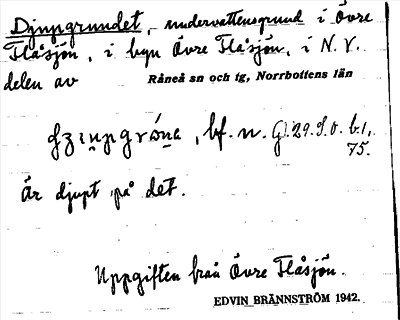 Djupgrundet, undervattensgrund i Övre
Flåsjön, i byn Övre Flåsjön, i N.V.
delen av Råneå sn och tg, Norrbottens län
, bf. n. G). 29. S. o. b. 1,
75.
Är djupt på det.
Uppgiften från Övre Flåsjön.
EDVIN BRÄNNSTRÖM 1942.